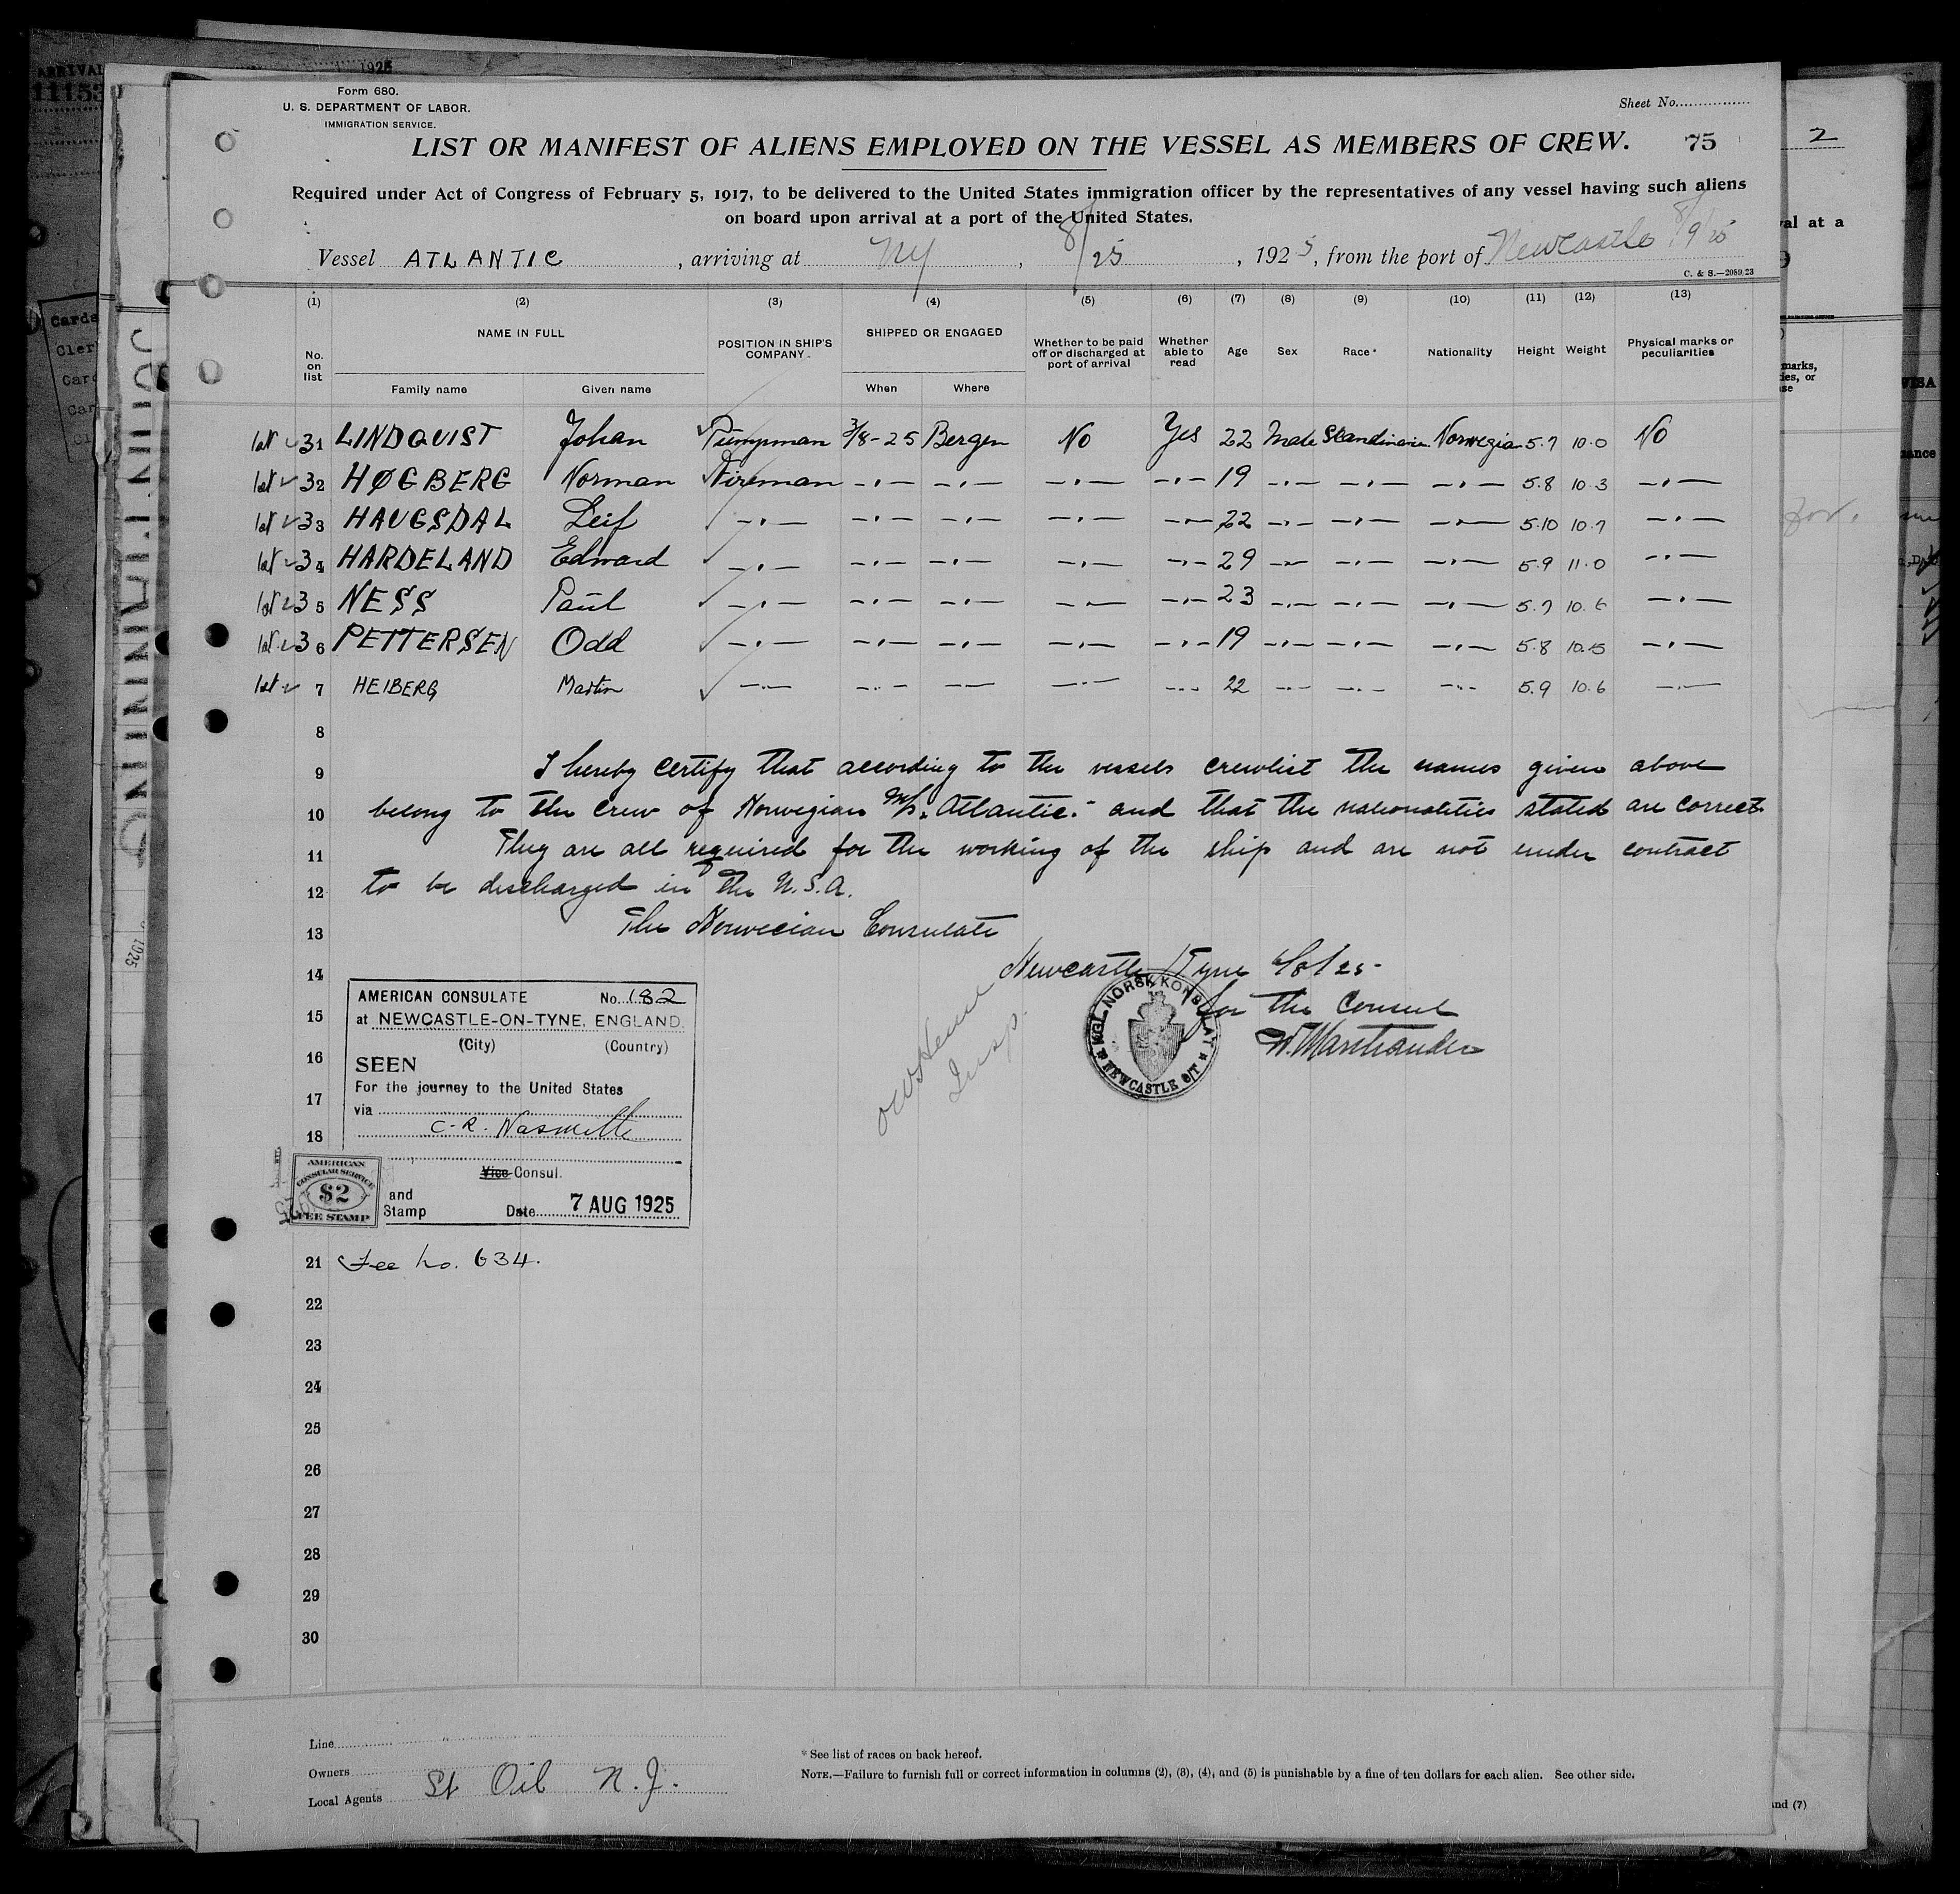 Form 680.
U. S. DEPARTMENT OF LABOR.
IMMIGRATION SERVICE.
Sheet No.
LIST OR MANIFEST OF ALIENS EMPLOYED ON THE VESSEL AS MEMBERS OF CREW. 75
Required under Act of Congress of February 5, 1917, to be delivered to the United States immigration officer by the representatives of any vessel having such aliens
on board upon arrival at a port of the United States.
Vessel ATLANTIC, arriving at NY, 8/25, 1925, from the port of Newcastle 8/9/25
C. & S.—2089/23
(1) (2) (3) (4) (5) (6) (7) (8) (9) (10) (11) (12) (13)
No. on list NAME IN FULL POSITION IN SHIP'S COMPANY. SHIPPED OR ENGAGED Whether to be paid off or discharged at port of arrival Whether able to read Age Sex Race* Nationality Height Weight Physical marks or peculiarities
Family name Given name When Where
1st 31 LINDQUIST Johan Pumpman 3/8-25 Bergen No Yes 22 Male Scandinavian Norwegian 5.7 10.0 No
1st 32 HØGBERG Norman Fireman -·- -·- -·- -·- 19 -·- -·- -·- 5.8 10.3 -·-
1st 33 HAUGSDAL Leif -·- -·- -·- -·- -·- 22 -·- -·- -·- 5.10 10.7 -·-
1st 34 HARDELAND Edward -·- -·- -·- -·- -·- 29 -·- -·- -·- 5.9 11.0 -·-
1st 35 NESS Paul -·- -·- -·- -·- -·- 23 -·- -·- -·- 5.7 10.6 -·-
1st 36 PETTERSEN Odd -·- -·- -·- -·- -·- 19 -·- -·- -·- 5.8 10.5 -·-
1st 7 HEIBERG Martin -·- -·- -·- -·- -·- 22 -·- -·- -·- 5.9 10.6 -·-
8
9 I hereby certify that according to the vessels crewlist the names given above
10 belong to the crew of Norwegian M/S. Atlantic.- and that the nationalities stated are correct.
11 They are all required for the working of the ship and are not under contract
12 to be discharged in the U.S.A.
13 The Norwegian Consulate
14 Newcastle/Tyne 6/8/25-
15 for the Consul
16
17
18
KGL. NORSK KONSULAT
NEWCASTLE O/T
AMERICAN CONSULATE No. 182
at NEWCASTLE-ON-TYNE, ENGLAND.
(City) (Country)
SEEN
For the journey to the United States
via
C. R. Nasmith
Vice Consul.
and
Stamp Date 7 AUG 1925
AMERICAN
CONSULAR SERVICE
$2
FEE STAMP
Insp.
21 Fee no. 634.
22
23
24
25
26
27
28
29
30
Line
Owners
Local Agents St Oil N.J.
* See list of races on back hereof.
NOTE.—Failure to furnish full or correct information in columns (2), (3), (4), and (5) is punishable by a fine of ten dollars for each alien. See other side.
ARRIVAL
11153
1925
2
val at a
and (7)